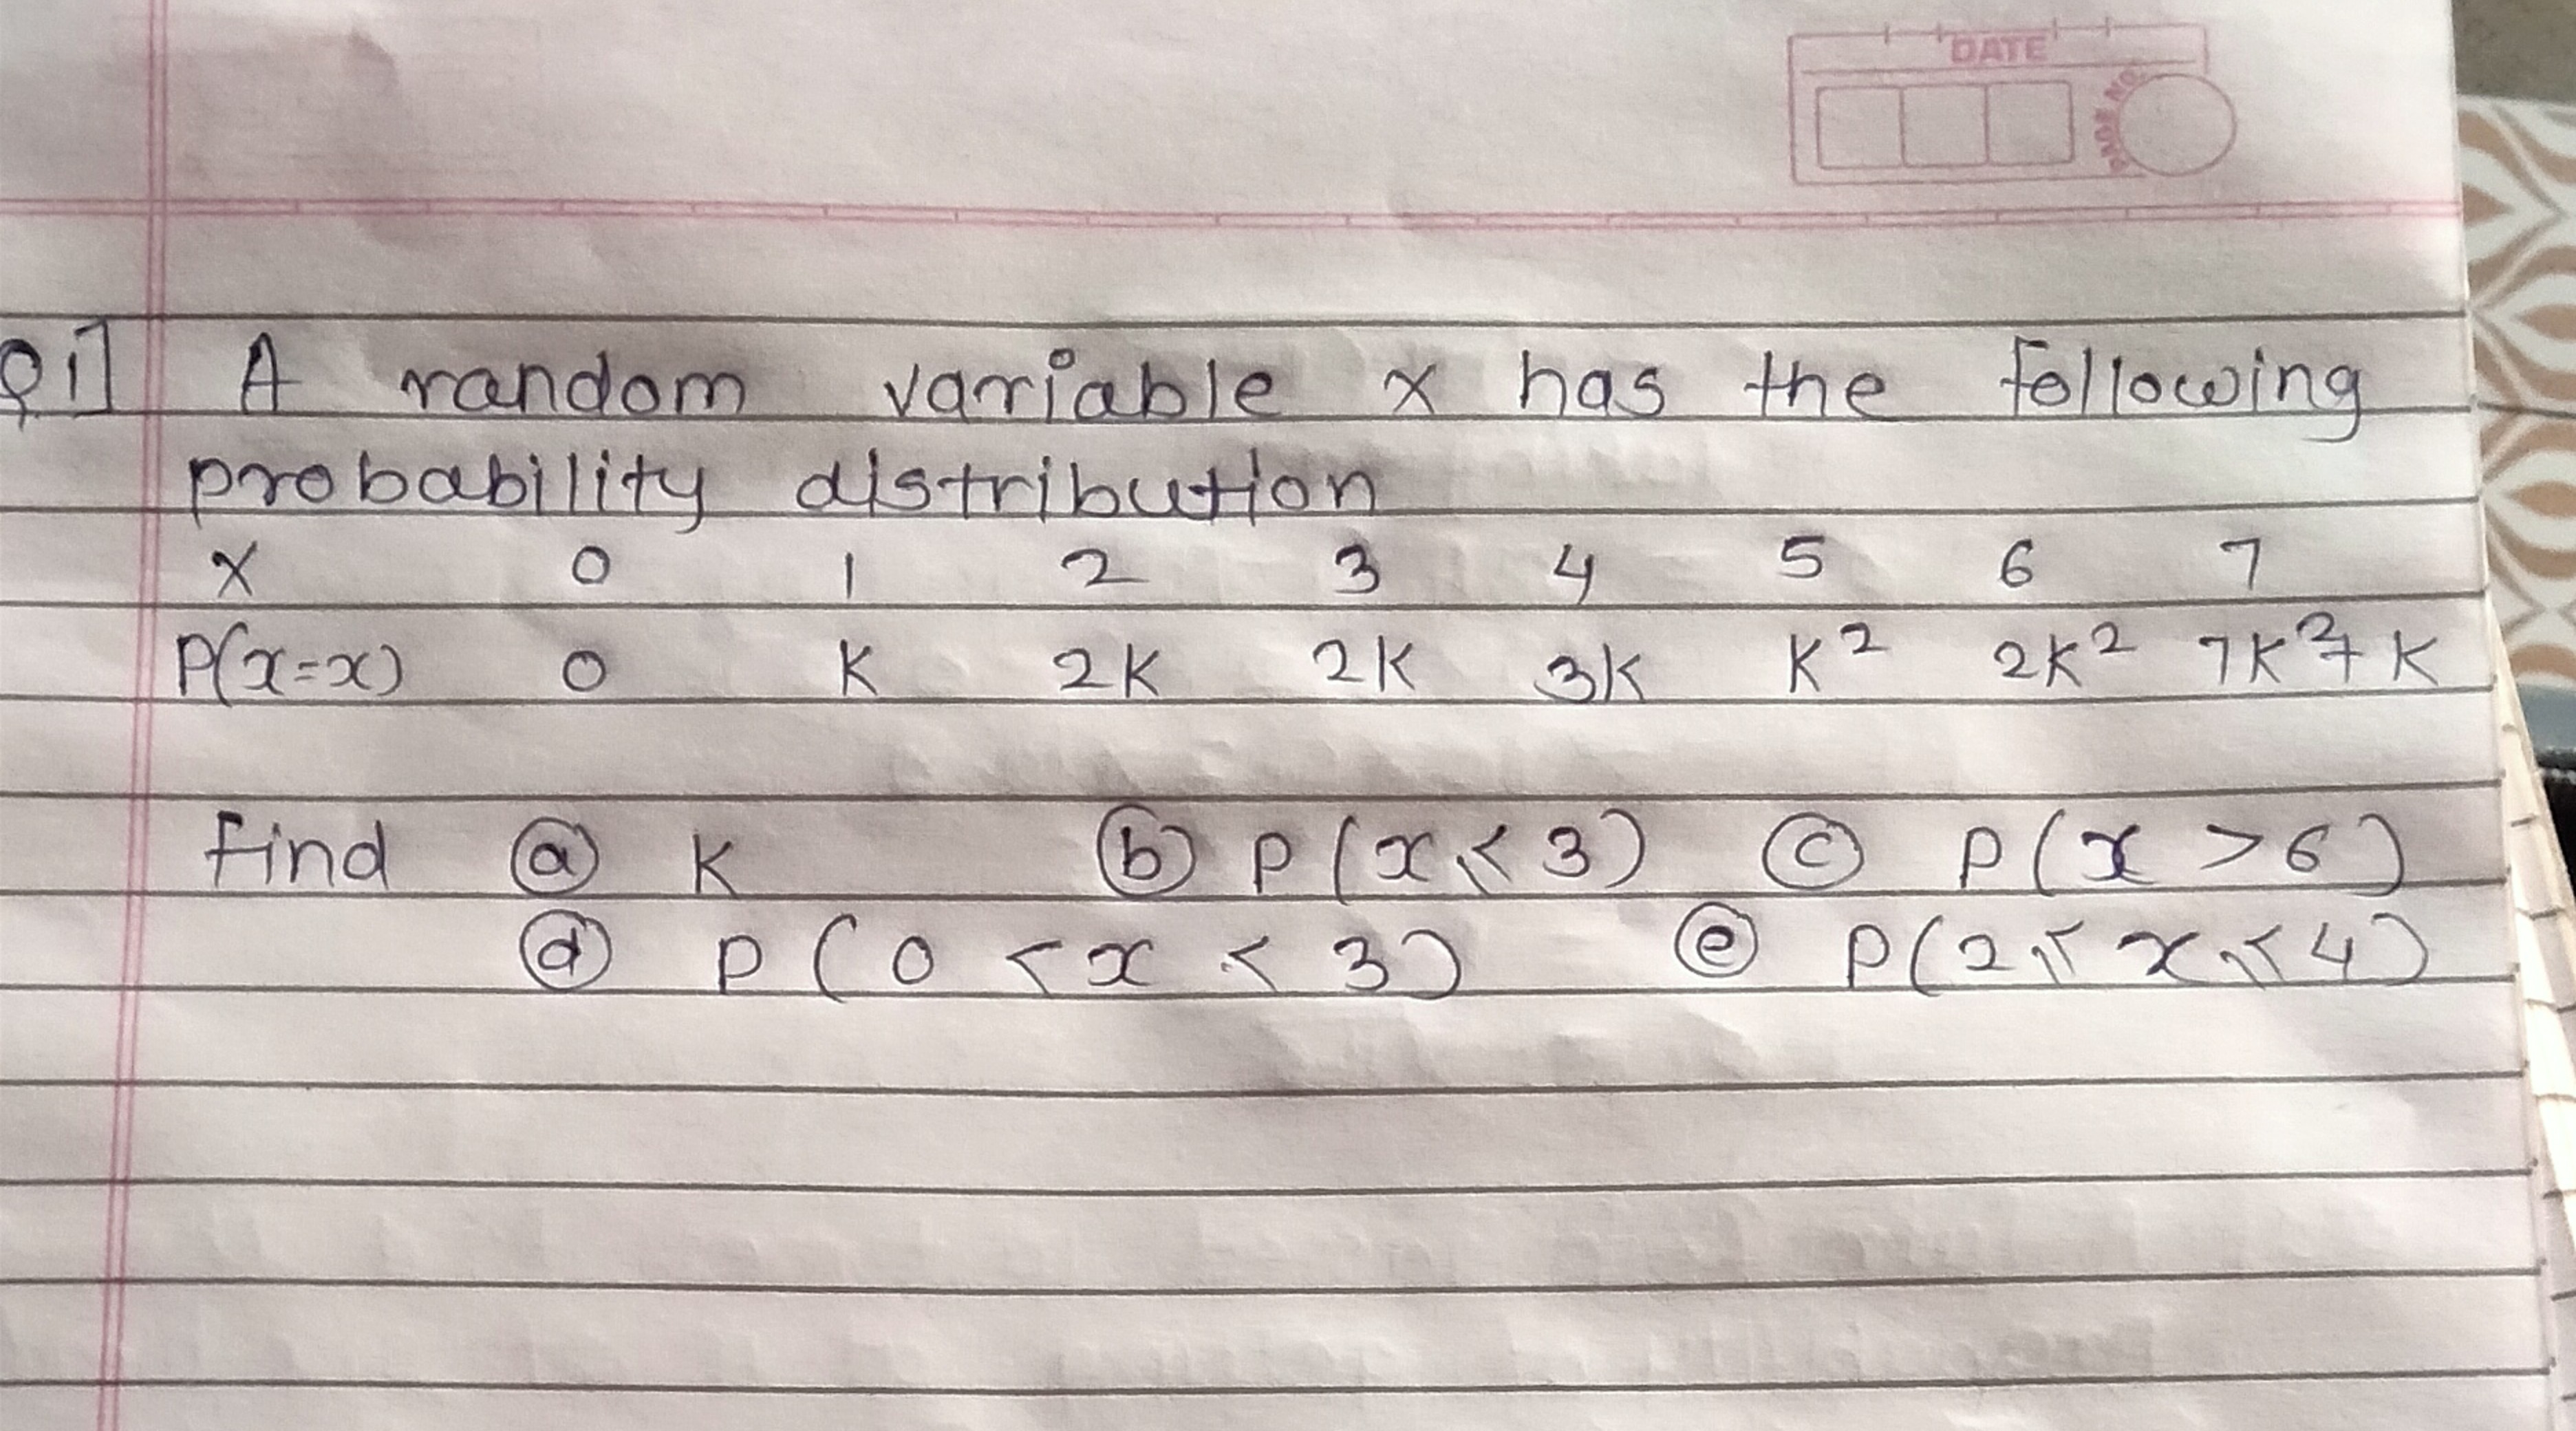 DATE
PAGE NO.
Q1] A random variable x has the following
probability distribution
X 0 1 2 3 4 5 6 7
P(x=x) 0 K 2K 2K 3K K² 2K² 7K²+K
find ⓐ K ⓑ P(x≤3) ⓒ P(x>6)
ⓓ P(0<x<3) ⓔ P(2≤x≤4)